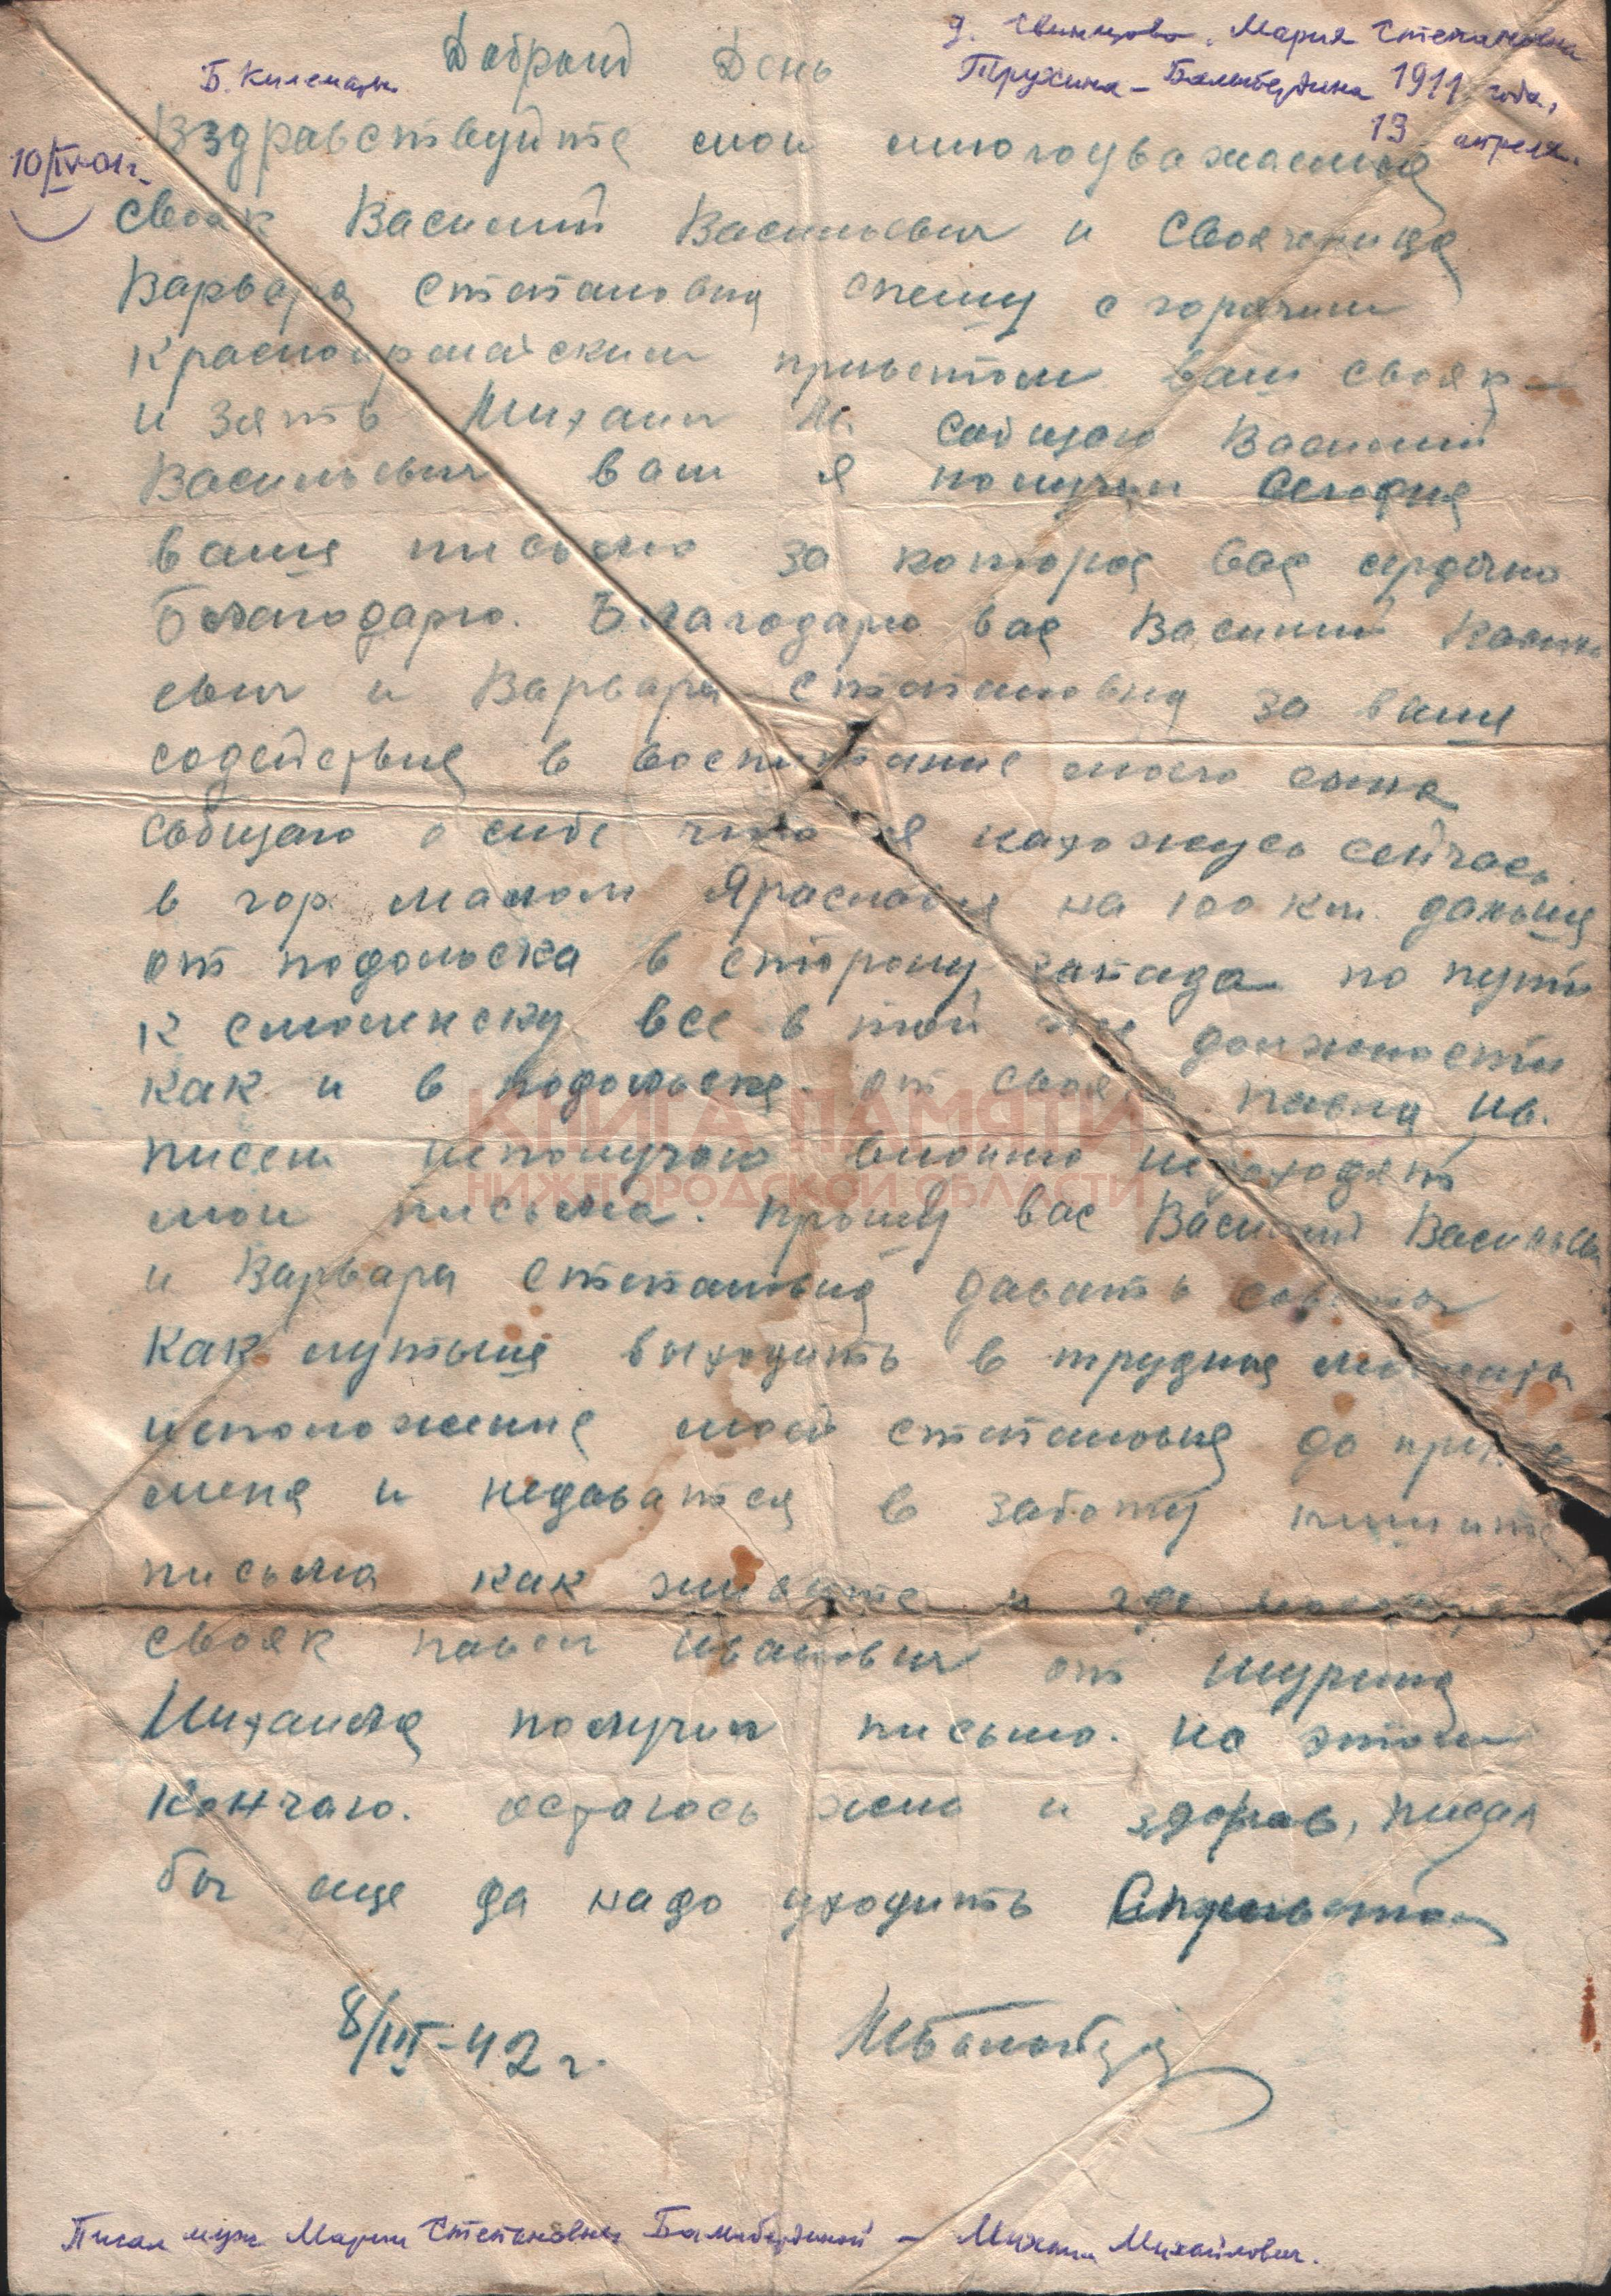 д. Свинцово. Мария Степановна
Б. Килемары Трухина - Балыбердина 1911 года,
13 апреля.
10/IV-01г.
Добрыид День
Вздравствуйте мои многоуважаемыя
свояк Василий Васильевич и Свояченица
Варвара Степановна спешу с горячим
красноармейским приветом ваш свояк
и зять Михаил М. Сообщаю Василий
Васильевич вам я получил Сегодня
ваше письмо за которое вас сердечно
Благодарю. Благодарю вас Василий
евич и Варвара Степановна за ваше
содействие в воспитание моего сына
сообщаю о себе что я нахожусь сейчась
в гор. малом Яраславце на 100 км. дальше
от подольска в сторону запада по пути
к смоленску все в той же должности
как и в подольске. от свояка павла Ив.
писем неполучаю видимо недоходят
мои письма. прошу вас Василий Василье
и Варвара Степановна давать советы
Как лутьше выходить в трудные моменты
исположение моей степановне до
меня и недаватся в заботу пишите
письма как живете и где
свояк павел ивановичь от шурина
Михаила получил письмо. на этом
Кончаю. остаюсь жив и здоров, писал
бы еще да надо уходить Сприветом
8/III-42 г.
КНИГА ПАМЯТИ
НИЖЕГОРОДСКОЙ ОБЛАСТИ
Писал муж Марии Степановны Балыбердиной - Михаил Михайлович.